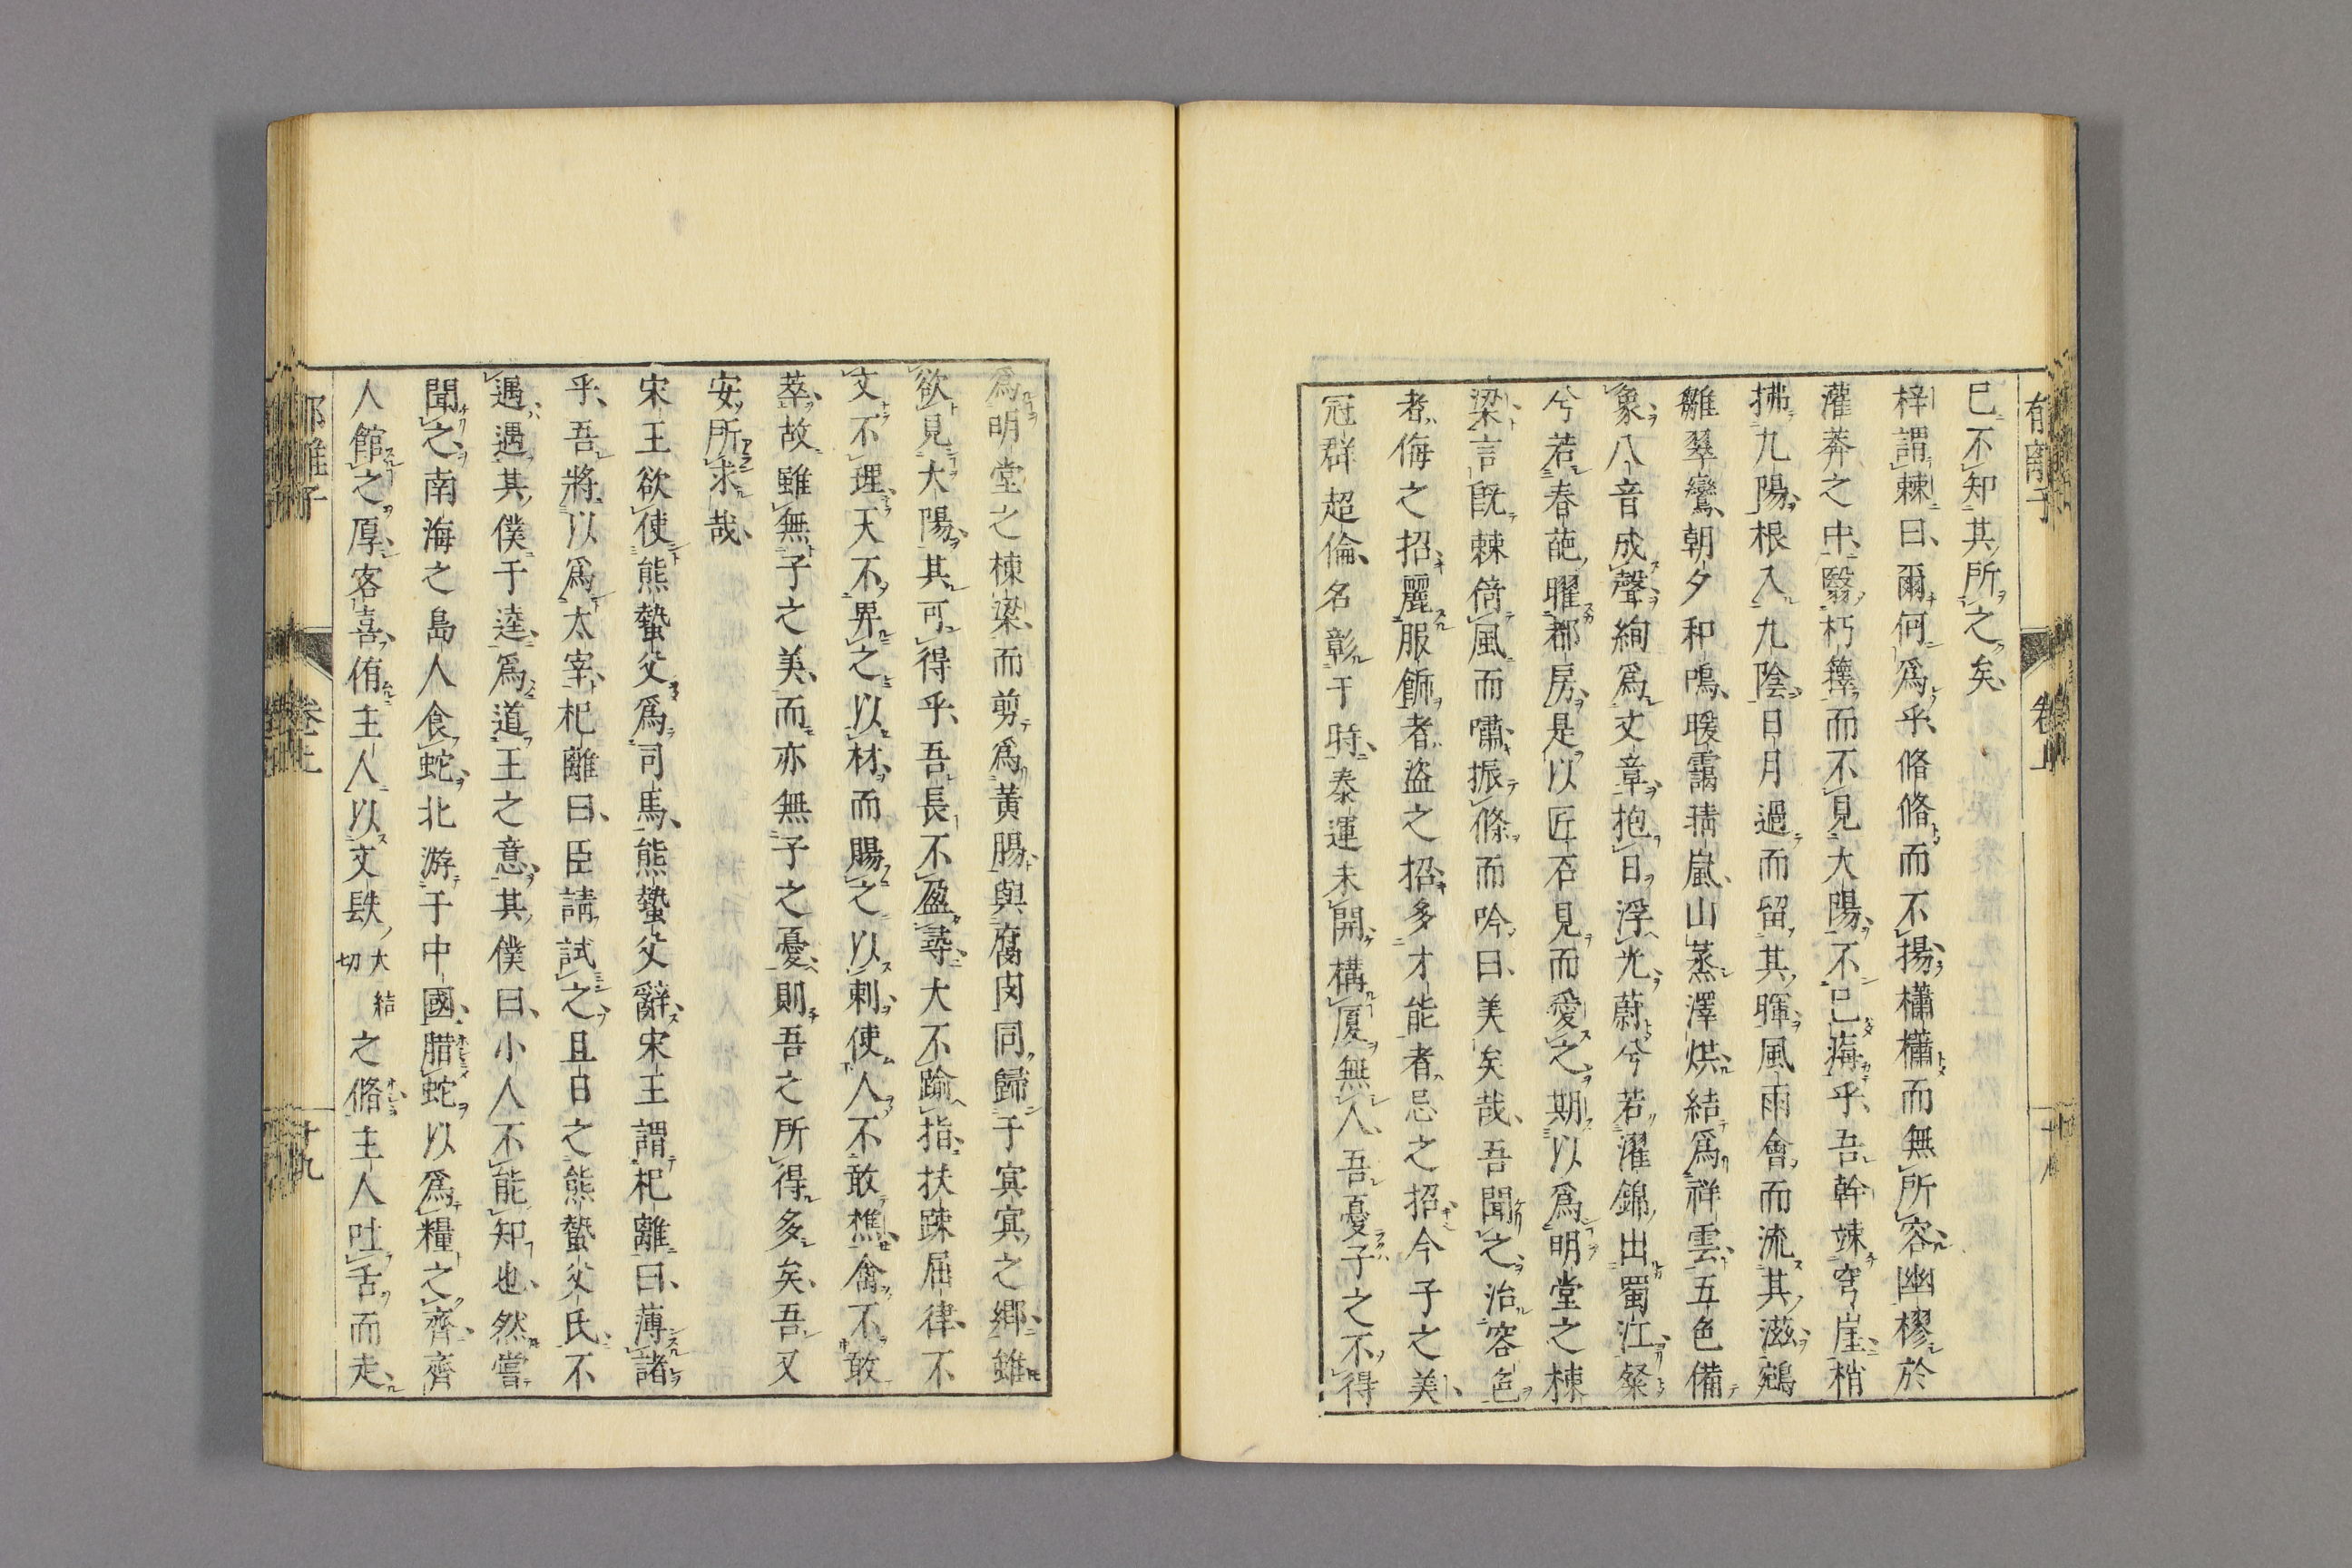 郁離子　卷上　十八
已不知其所之矣
梓謂棘曰爾何爲乎脩脩而不揚櫹櫹而無所容幽樛於
灌莽之中翳朽籜而不見大陽不已痗乎吾幹竦穹崖梢
拂九陽根入九陰日月過而留其暉風雨會而流其滋鵷
雛翠鸞朝夕和鳴暖靄晴嵐山蒸澤烘結爲祥雲五色備
象八音成聲絢爲文章抱日浮光蔚兮若濯錦出蜀江粲
兮若春葩曜都房是以匠石見而愛之期以爲明堂之棟
梁言旣棘倚風而嘯振條而吟曰美矣哉吾聞之冶容色
者侮之招麗服飾者盜之招多才能者忌之招今子之美
冠群超倫名彰于時泰運未開構厦無人吾憂子之不得
爲明堂之棟梁而剪爲黃腸與腐肉同歸于㝠㝠之鄉雖
欲見大陽其可得乎吾長不盈尋大不踰指扶踈屈律不
文不理天不畀之以材而賜之以刺使人不敢樵禽不敢
萃故雖無子之美而亦無子之憂則吾之所得多矣吾又
安所求哉
宋王欲使熊蟄父爲司馬熊蟄父辭宋王謂杞離曰薄諸
乎吾將以爲太宰杞離曰臣請試之旦日之熊蟄父氏不
遇遇其僕于逵爲道王之意其僕曰小人不能知也然嘗
聞之南海之島人食蛇北游于中國腊蛇以爲糧之齊齊
人館之厚客喜侑主人以文镻大結切之脩主人吐舌而走
郁離子　卷上　十九